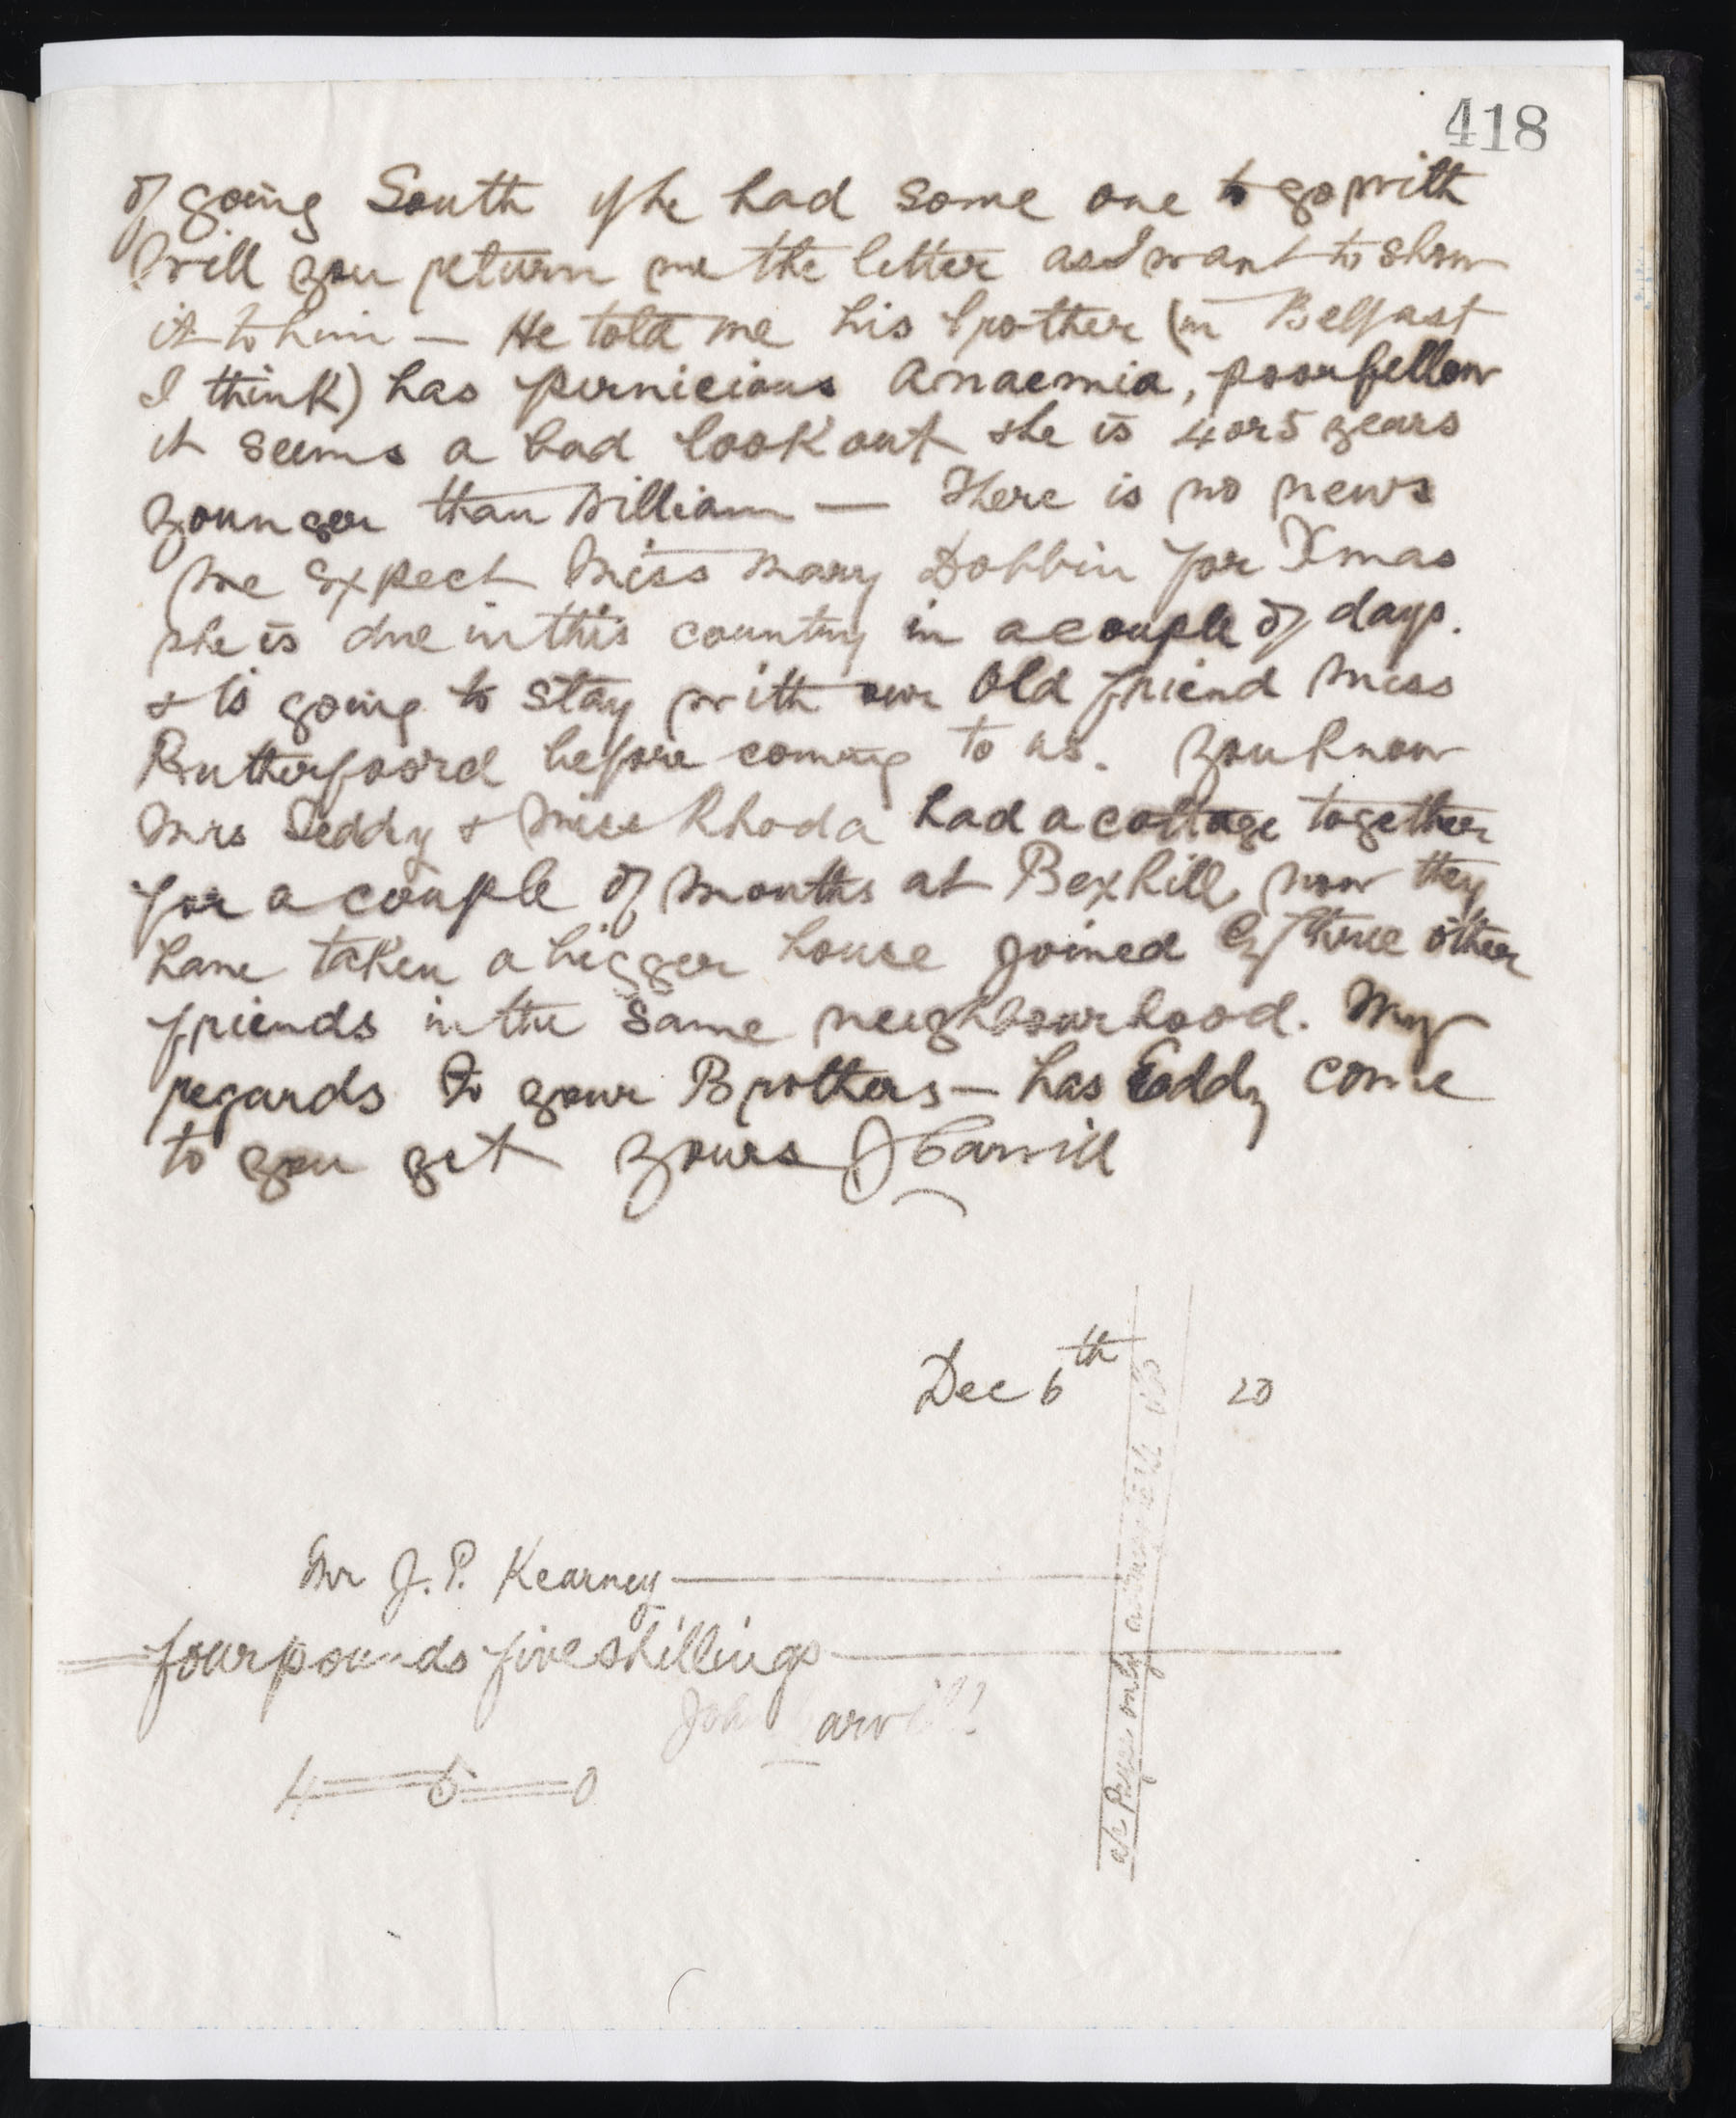 418
of going South if he had some one to go with
Will you return me the letter as I want to show
it to him — He told me his brother (in Belfast
I think) has pernicious Anaemia, poor fellow
it seems a bad look out he is 4 or 5 years
younger than William — There is no news
We expect Miss Mary Dobbin for Xmas
she is due in this country in a couple of days.
& is going to stay with our old friend Miss
Rutherfoord before coming to us. You know
Mrs Deddy & Miss Rhoda had a cottage together
for a couple of months at Bexhill, now they
have taken a bigger house joined by three other
friends in the same neighbourhood. My
regards to your Brothers — has Eddy come
to you yet yours J Carvill
Dec 6th 20
Mr J. P. Kearney
four pounds five shillings
John arvill
4 = 5 = 0
a/c Payee only